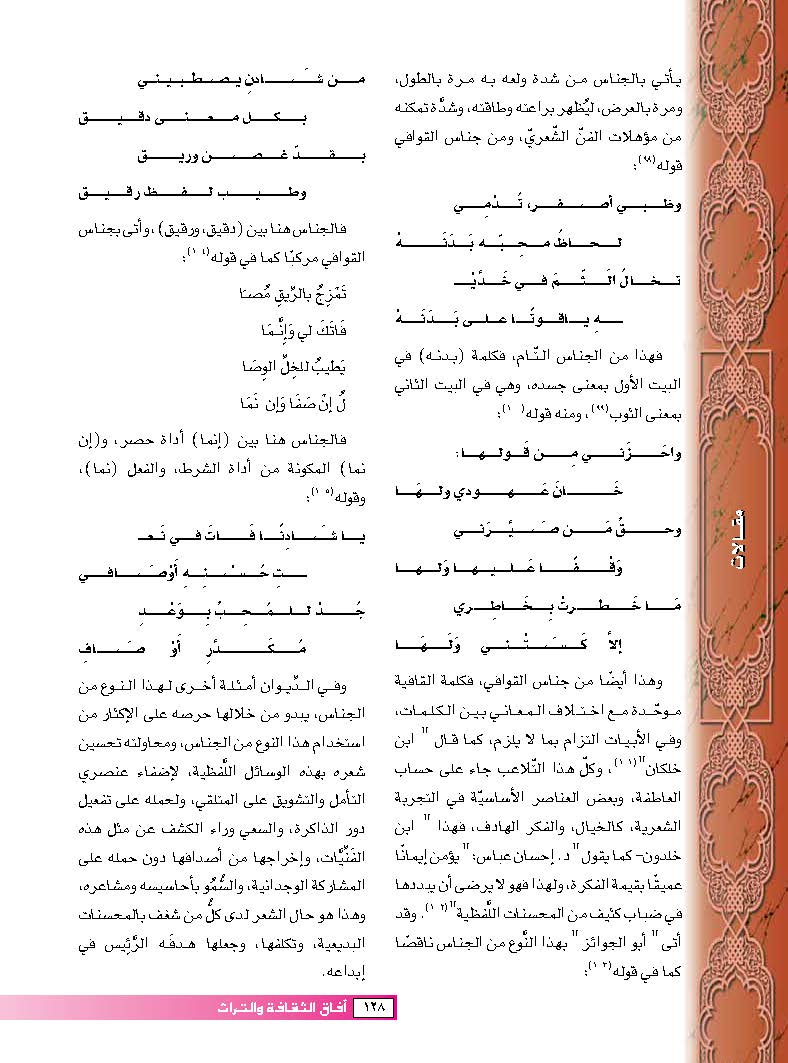 يأتي بالجناس من شدة ولعه به مرة بالطول،
ومرة بالعرض، ليُظهر براعته وطاقته، وشدَّة تمكنه
من مؤهلات الفنّ الشّعريّ، ومن جناس القوافي
قوله(٩٨):
وظبي أصفر، تُدْمِي
لحاظُ محِبّه بَدَنَهْ
تخالُ الَثّمَ في خَدَّيْـ
ـهِ ياقوتًا على بَدَنَهْ
فهذا من الجناس التّام، فكلمة (بدنه) في
البيت الأول بمعنى جسده، وهي في البيت الثاني
بمعنى الثوب(٩٩)، ومنه قوله(١٠٠):
واحَزَني مِن قَولها:
خَانَ عَهودي ولهَا
وحقُ مَن صَيَّرَني
وَقْفًا عَليها وَلها
مَا خَطرتْ بِخَاطِري
إلاَّ كَسَتْني وَلَهَا
وهذا أيضًا من جناس القوافي، فكلمة القافية
موحّدة مع اختلاف المعاني بين الكلمات،
وفي الأبيات التزام بما لا يلزم، كما قال " ابن
خلكان"(١٠١)، وكلّ هذا التّلاعب جاء على حساب
العاطفة، وبعض العناصر الأساسيّة في التجربة
الشعرية، كالخيال، والفكر الهادف، فهذا " ابن
خلدون- كما يقول" د. إحسان عباس: " يؤمن إيمانًا
عميقًا بقيمة الفكرة، ولهذا فهو لا يرضى أن يبددها
في ضباب كثيف من المحسنات اللّفظية"(١٠٢). وقد
أتى " أبو الجوائز " بهذا النَّوع من الجناس ناقصًا
كما في قوله(١٠٣):
من شَادنِ يصطبيني
بكل معنى دقيق
بقدّ غصن وريق
وطيب لفظ رقيق
فالجناس هنا بين (دقيق، ورقيق)، وأتى بجناس
القوافي مركبًا كما في قوله(١٠٤):
تَمْزِجُ بالرِّيقِ مُصـَا
فَاتَكَ لي وَإِنَّمَا
يَطيبُ للخِلِّ الوِصَا
لُ إنْ صَفَا وَإن نَمَا
فالجناس هنا بين (إنما) أداة حصر، و(إن
نما) المكونة من أداة الشرط، والفعل (نما)،
وقوله(١٠٥):
يا شَادِنًا فَاتَ في نَعـ
ـتِ حُسْنِهِ أَوْصَافي
جُدْ للمُحِبُ بِوَعْدِ
مُكَدَّرِ أَوْ صَافِ
وفي الدِّيوان أمثلة أخرى لهذا النوع من
الجناس، يبدو من خلالها حرصه على الإكثار من
استخدام هذا النوع من الجناس، ومحاولته تحسين
شعره بهذه الوسائل اللَّفظية، لإضفاء عنصري
التأمل والتشويق على المتلقي، ولحمله على تفعيل
دور الذاكرة، والسعي وراء الكشف عن مثل هذه
الفَنِّيَّات، وإخراجها من أصدافها دون حمله على
المشاركة الوجدانية، والسُّمُو بأحاسيسه ومشاعره،
وهذا هو حال الشعر لدى كلُّ من شغف بالمحسنات
البديعية، وتكلفها، وجعلها هدفَه الرَّئِيس في
إبداعه.
مقالات
١٢٨ آفاق الثقافة والتراث